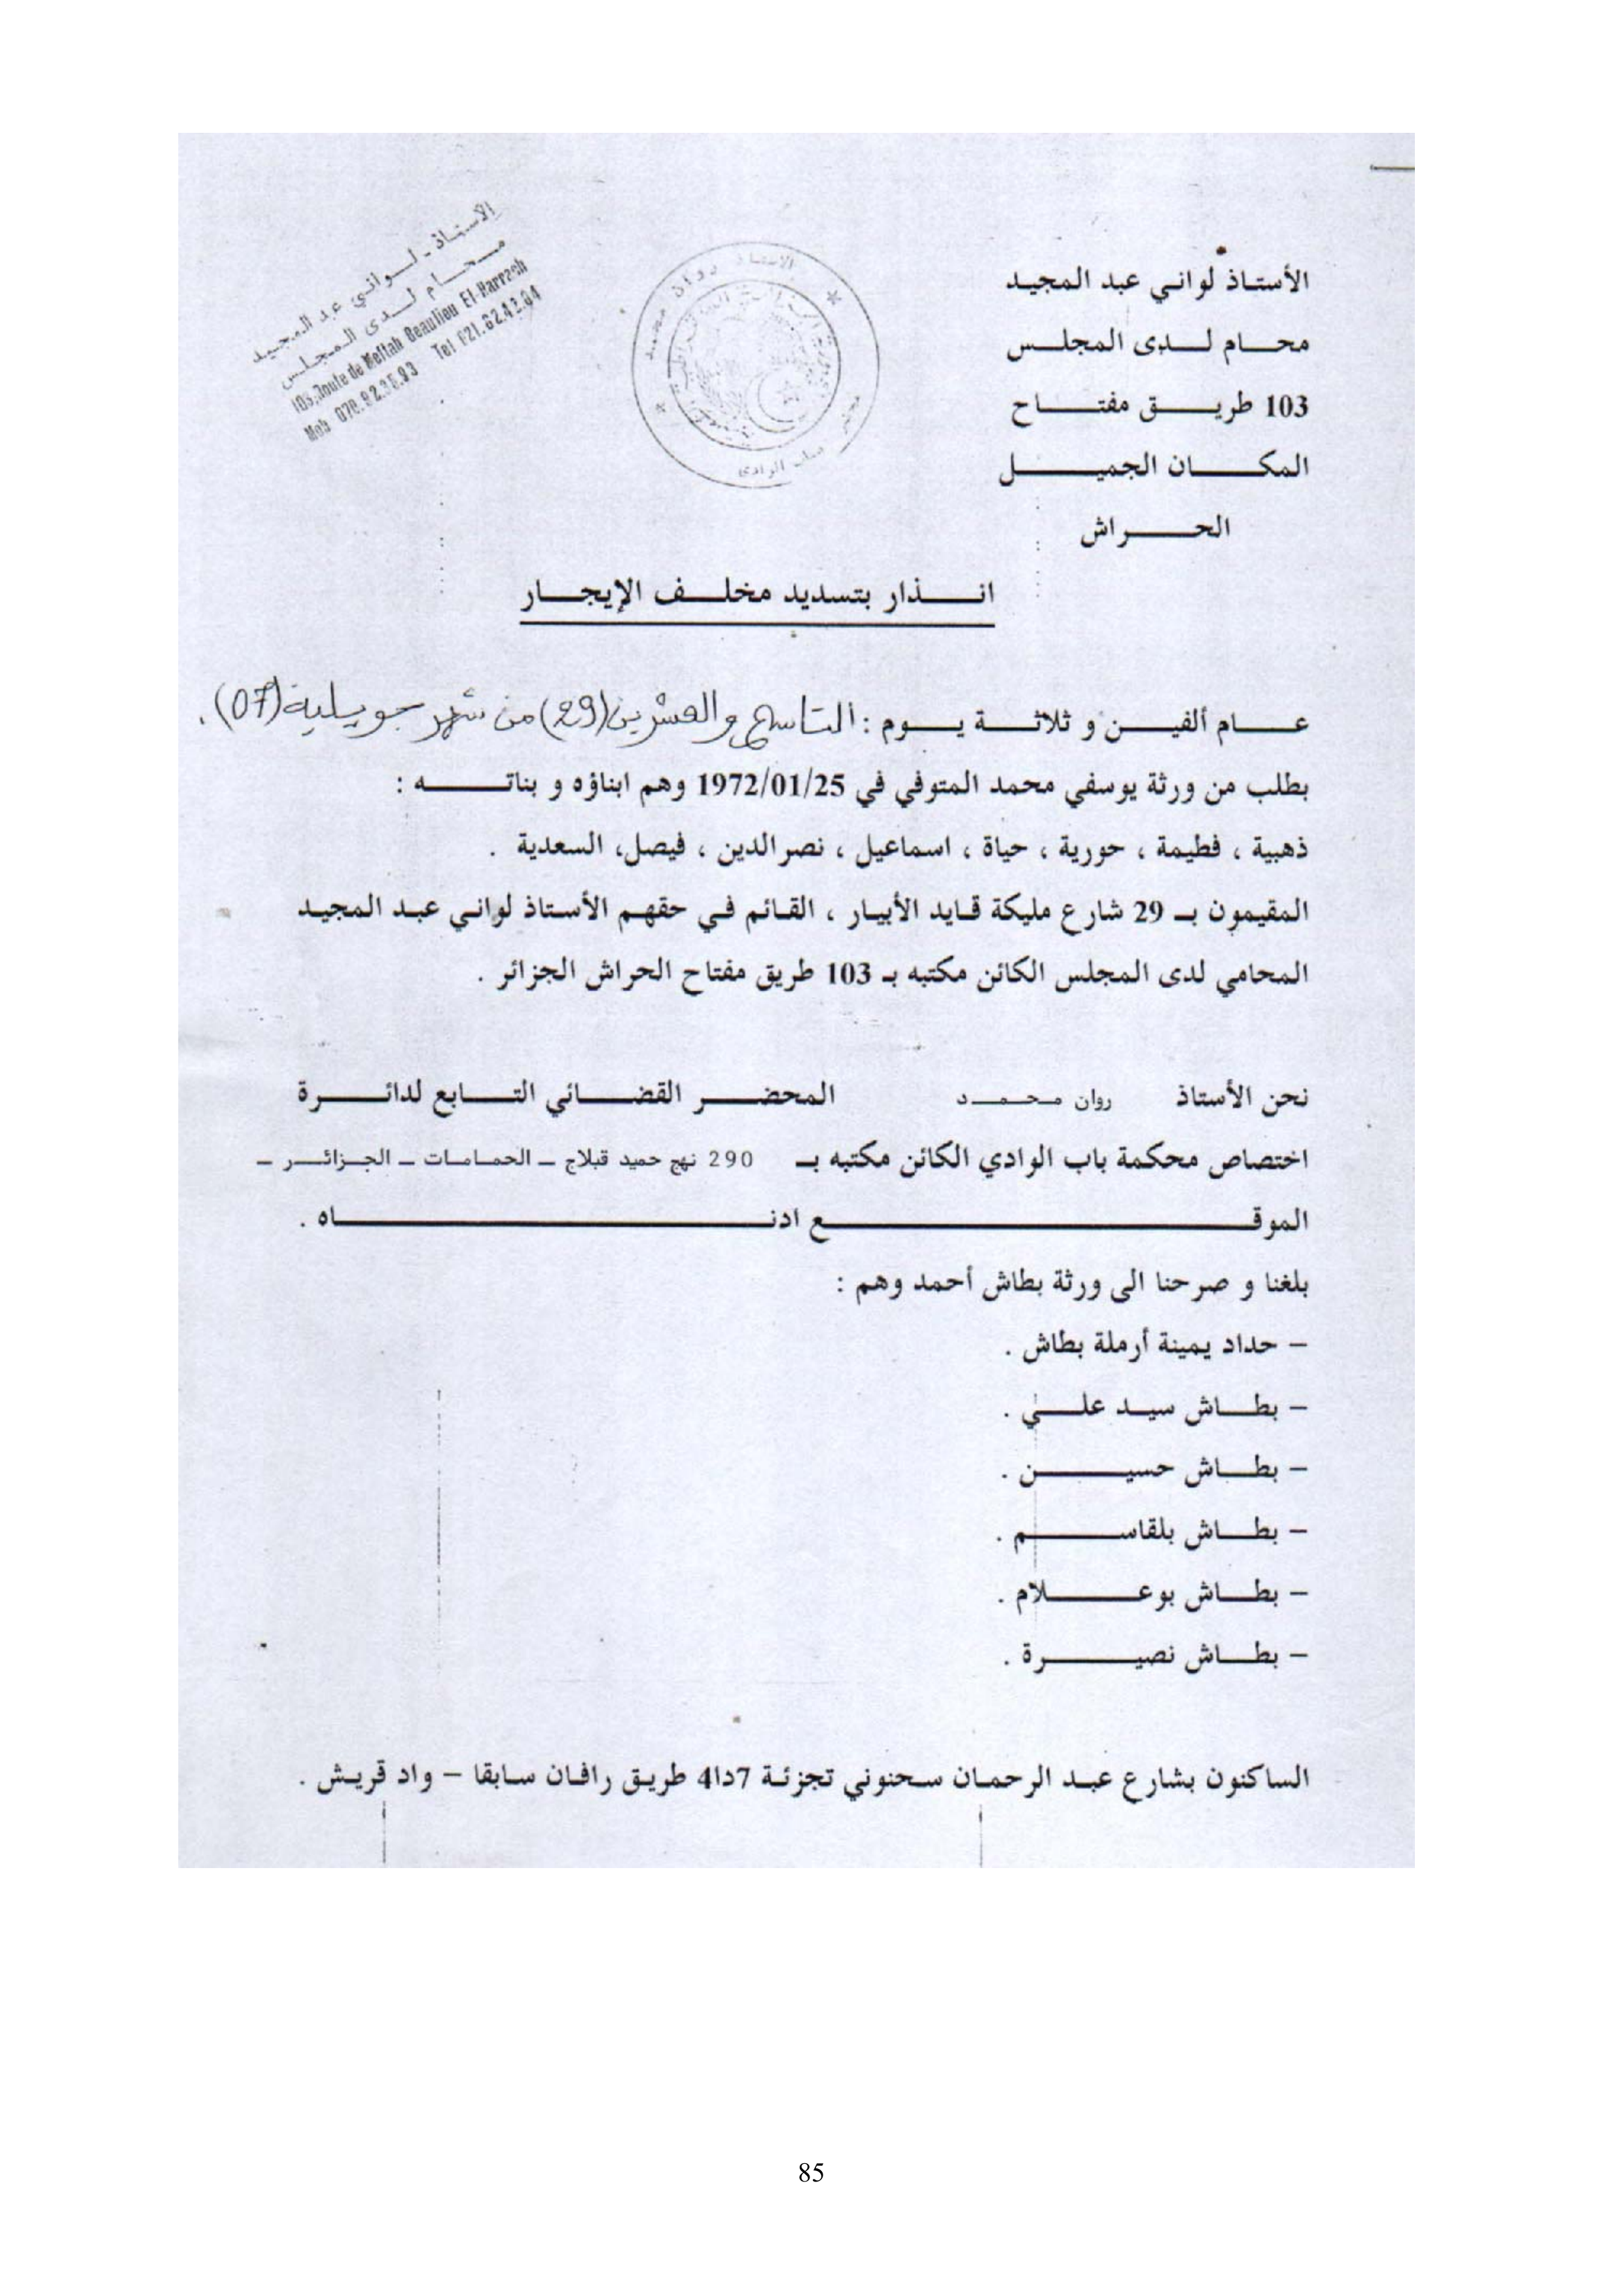 الأستاذ لواني عبد المجيد
محام لدى المجلس
103 طريق مفتاح
المكان الجميل
الحراش
الأستاذ - لواني عبد المجيد
محام لدى المجلس
103, Route de Meftah Beaulieu El-Harrach
Mob 070.92.36.93 Tel 021.62.42.04
الاستاذ روان محمد
باب الوادي
انذار بتسديد مخلف الإيجار
عام ألفين و ثلاثة يوم : التاسع والعشرين (29) من شهر جويلية (07).
بطلب من ورثة يوسفي محمد المتوفي في 1972/01/25 وهم ابناؤه و بناته :
ذهبية ، فطيمة ، حورية ، حياة ، اسماعيل ، نصرالدين ، فيصل، السعدية .
المقيمون بـ 29 شارع مليكة قايد الأبيار ، القائم في حقهم الأستاذ لواني عبد المجيد
المحامي لدى المجلس الكائن مكتبه بـ 103 طريق مفتاح الحراش الجزائر .
نحن الأستاذ روان محمد المحضر القضائي التابع لدائرة
اختصاص محكمة باب الوادي الكائن مكتبه بـ 290 نهج حميد قبلاج – الحمامات – الجزائر –
الموقع ادناه .
بلغنا و صرحنا الى ورثة بطاش أحمد وهم :
– حداد يمينة أرملة بطاش .
– بطاش سيد علي .
– بطاش حسين .
– بطاش بلقاسم .
– بطاش بوعلام .
– بطاش نصيرة .
الساكنون بشارع عبد الرحمان سحنوني تجزئة 7د4ا طريق رافان سابقا – واد قريش .
85